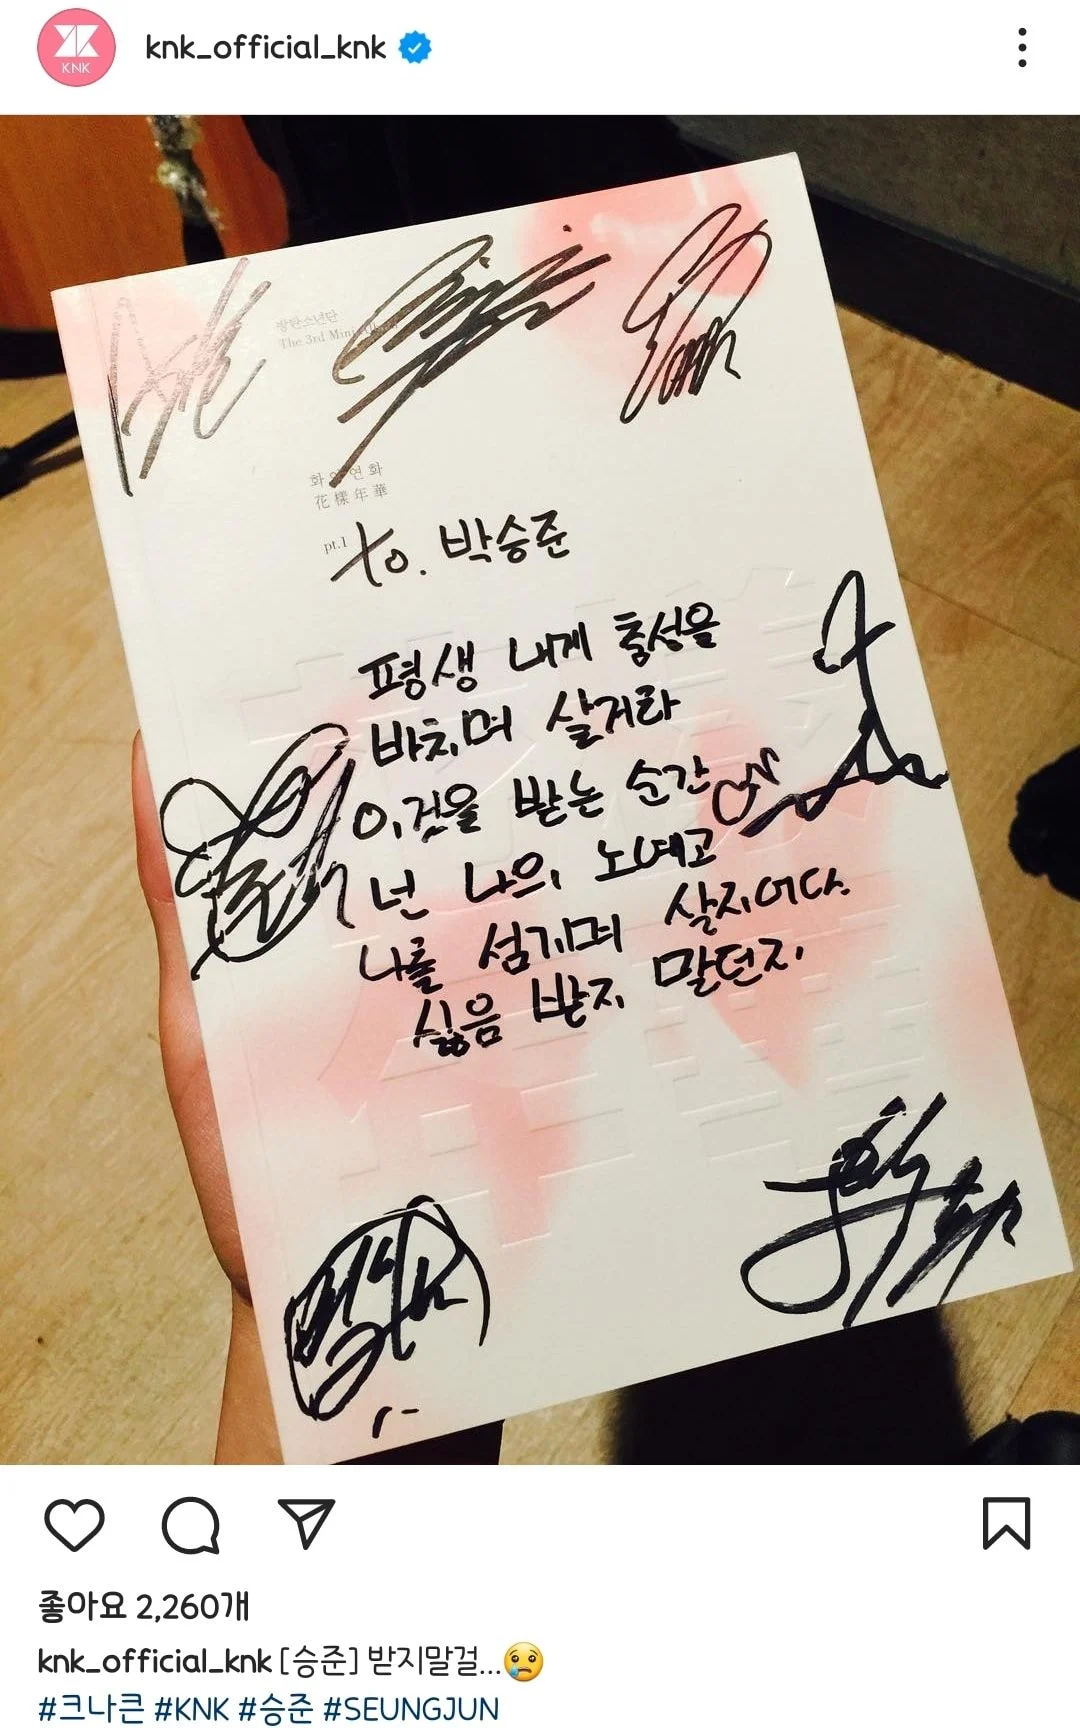 KNK
knk_official_knk
방탄소년단
The 3rd Mini
화양연화
花樣年華
pt.1
to. 박승준
평생 내게 충성을
바치며 살거라
이것을 받는 순간
넌 나의 노예고
나를 섬기며 살지어다.
싫음 받지 말던지
좋아요 2,260개
knk_official_knk [승준] 받지말걸...😢
#크나큰 #KNK #승준 #SEUNGJUN